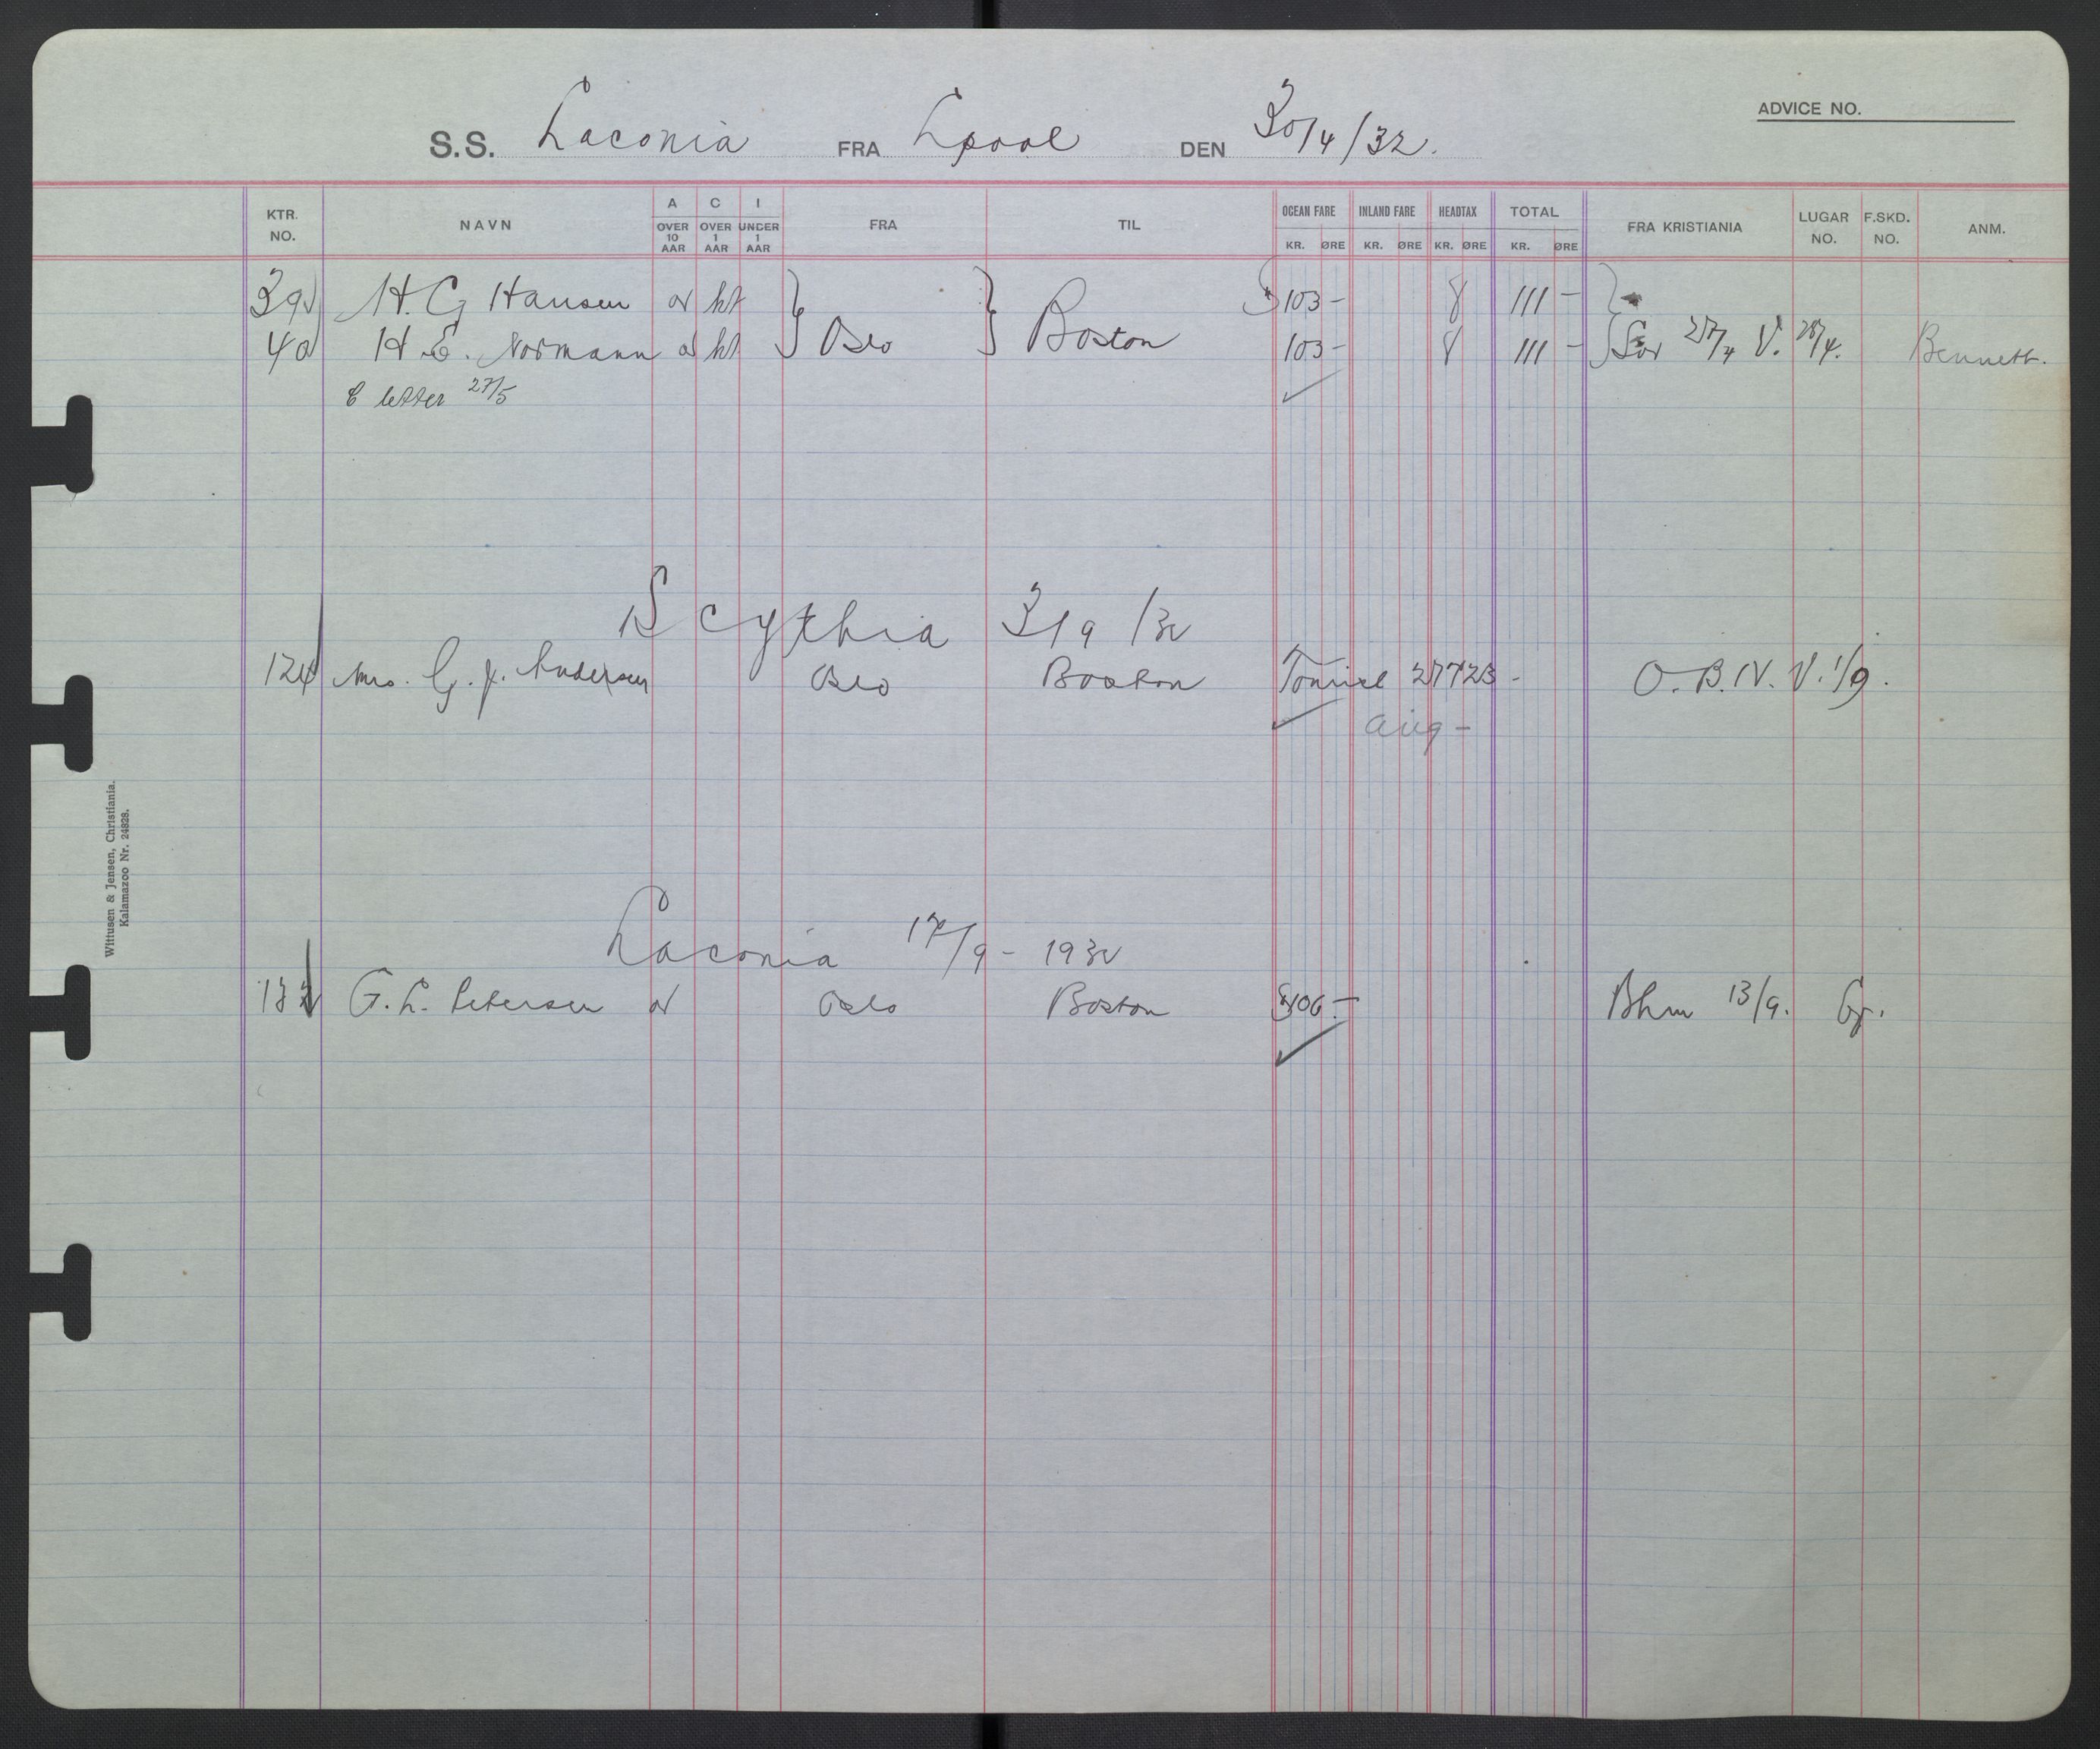 ADVICE NO.
S.S. Laconia FRA Lpool DEN 30/4/32.
KTR. NO. NAVN A OVER 10 AAR C OVER 1 AAR I UNDER 1 AAR FRA TIL OCEAN FARE KR. ØRE INLAND FARE KR. ØRE HEADTAX KR. ØRE TOTAL KR. ØRE FRA KRISTIANIA LUGAR NO. F.SKD. NO. ANM.
39 H. G Hansen $103- 8 111-
40 H. E. Normann Oslo Boston 103- 8 111- 27/4 V. 28/4. Bennett.
letter 27/5
Scythia 3/9/32
124 Mrs. G. J. Andersen Oslo Boston O.B.IV. V. 1/9.
aug-
Laconia 17/9-1932
G. L. Petersen Oslo Boston $106.- Bhm 13/9. Gr.
Wittusen & Jensen, Christiania.
Kalamazoo Nr. 24828.